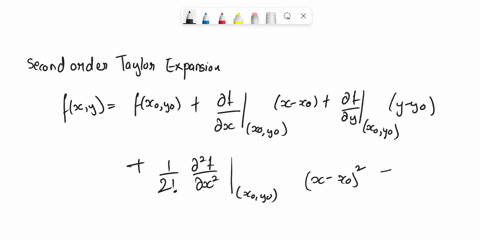 Second order Taylor Expansion
f(x,y) = f(x₀,y₀) + ∂f/∂x |(x₀,y₀) (x-x₀) + ∂f/∂y |(x₀,y₀) (y-y₀)
+ 1/2! ∂²f/∂x² |(x₀,y₀) (x-x₀)² -